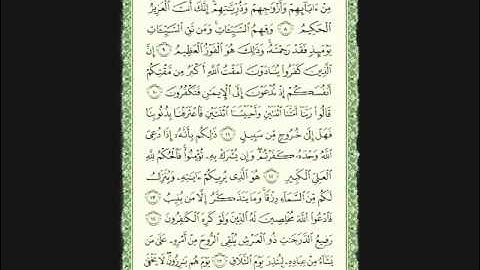 مِنْ ءَابَآئِهِمْ وَأَزْوَٰجِهِمْ وَذُرِّيَّٰتِهِمْ إِنَّكَ أَنتَ ٱلْعَزِيزُ
ٱلْحَكِيمُ ٨ وَقِهِمُ ٱلسَّيِّـَٔاتِ وَمَن تَقِ ٱلسَّيِّـَٔاتِ
يَوْمَئِذٍ فَقَدْ رَحِمْتَهُۥ وَذَٰلِكَ هُوَ ٱلْفَوْزُ ٱلْعَظِيمُ ٩ إِنَّ
ٱلَّذِينَ كَفَرُوا۟ يُنَادَوْنَ لَمَقْتُ ٱللَّهِ أَكْبَرُ مِن مَّقْتِكُمْ
أَنفُسَكُمْ إِذْ تُدْعَوْنَ إِلَى ٱلْإِيمَٰنِ فَتَكْفُرُونَ ١٠
قَالُوا۟ رَبَّنَآ أَمَتَّنَا ٱثْنَتَيْنِ وَأَحْيَيْتَنَا ٱثْنَتَيْنِ فَٱعْتَرَفْنَا بِذُنُوبِنَا
فَهَلْ إِلَىٰ خُرُوجٍ مِّن سَبِيلٍ ١١ ذَٰلِكُم بِأَنَّهُۥٓ إِذَا دُعِىَ
ٱللَّهُ وَحْدَهُۥ كَفَرْتُمْ وَإِن يُشْرَكْ بِهِۦ تُؤْمِنُوا۟ فَٱلْحُكْمُ لِلَّهِ
ٱلْعَلِىِّ ٱلْكَبِيرِ ١٢ هُوَ ٱلَّذِى يُرِيكُمْ ءَايَٰتِهِۦ وَيُنَزِّلُ
لَكُم مِّنَ ٱلسَّمَآءِ رِزْقًا وَمَا يَتَذَكَّرُ إِلَّا مَن يُنِيبُ ١٣
فَٱدْعُوا۟ ٱللَّهَ مُخْلِصِينَ لَهُ ٱلدِّينَ وَلَوْ كَرِهَ ٱلْكَٰفِرُونَ ١٤
رَفِيعُ ٱلدَّرَجَٰتِ ذُو ٱلْعَرْشِ يُلْقِى ٱلرُّوحَ مِنْ أَمْرِهِۦ عَلَىٰ مَن
يَشَآءُ مِنْ عِبَادِهِۦ لِيُنذِرَ يَوْمَ ٱلتَّلَاقِ ١٥ يَوْمَ هُم بَٰرِزُونَ لَا يَخْفَىٰ